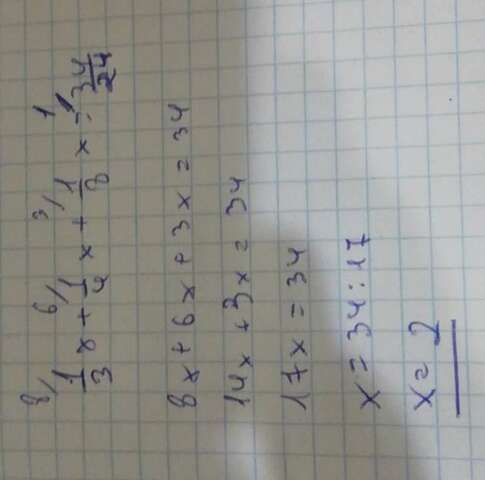 8/ 1/3 x + 6/ 1/4 x + 3/ 1/8 x = 1/ 34/24
8x + 6x + 3x = 34
14x + 3x = 34
17x = 34
x = 34 : 17
x = 2